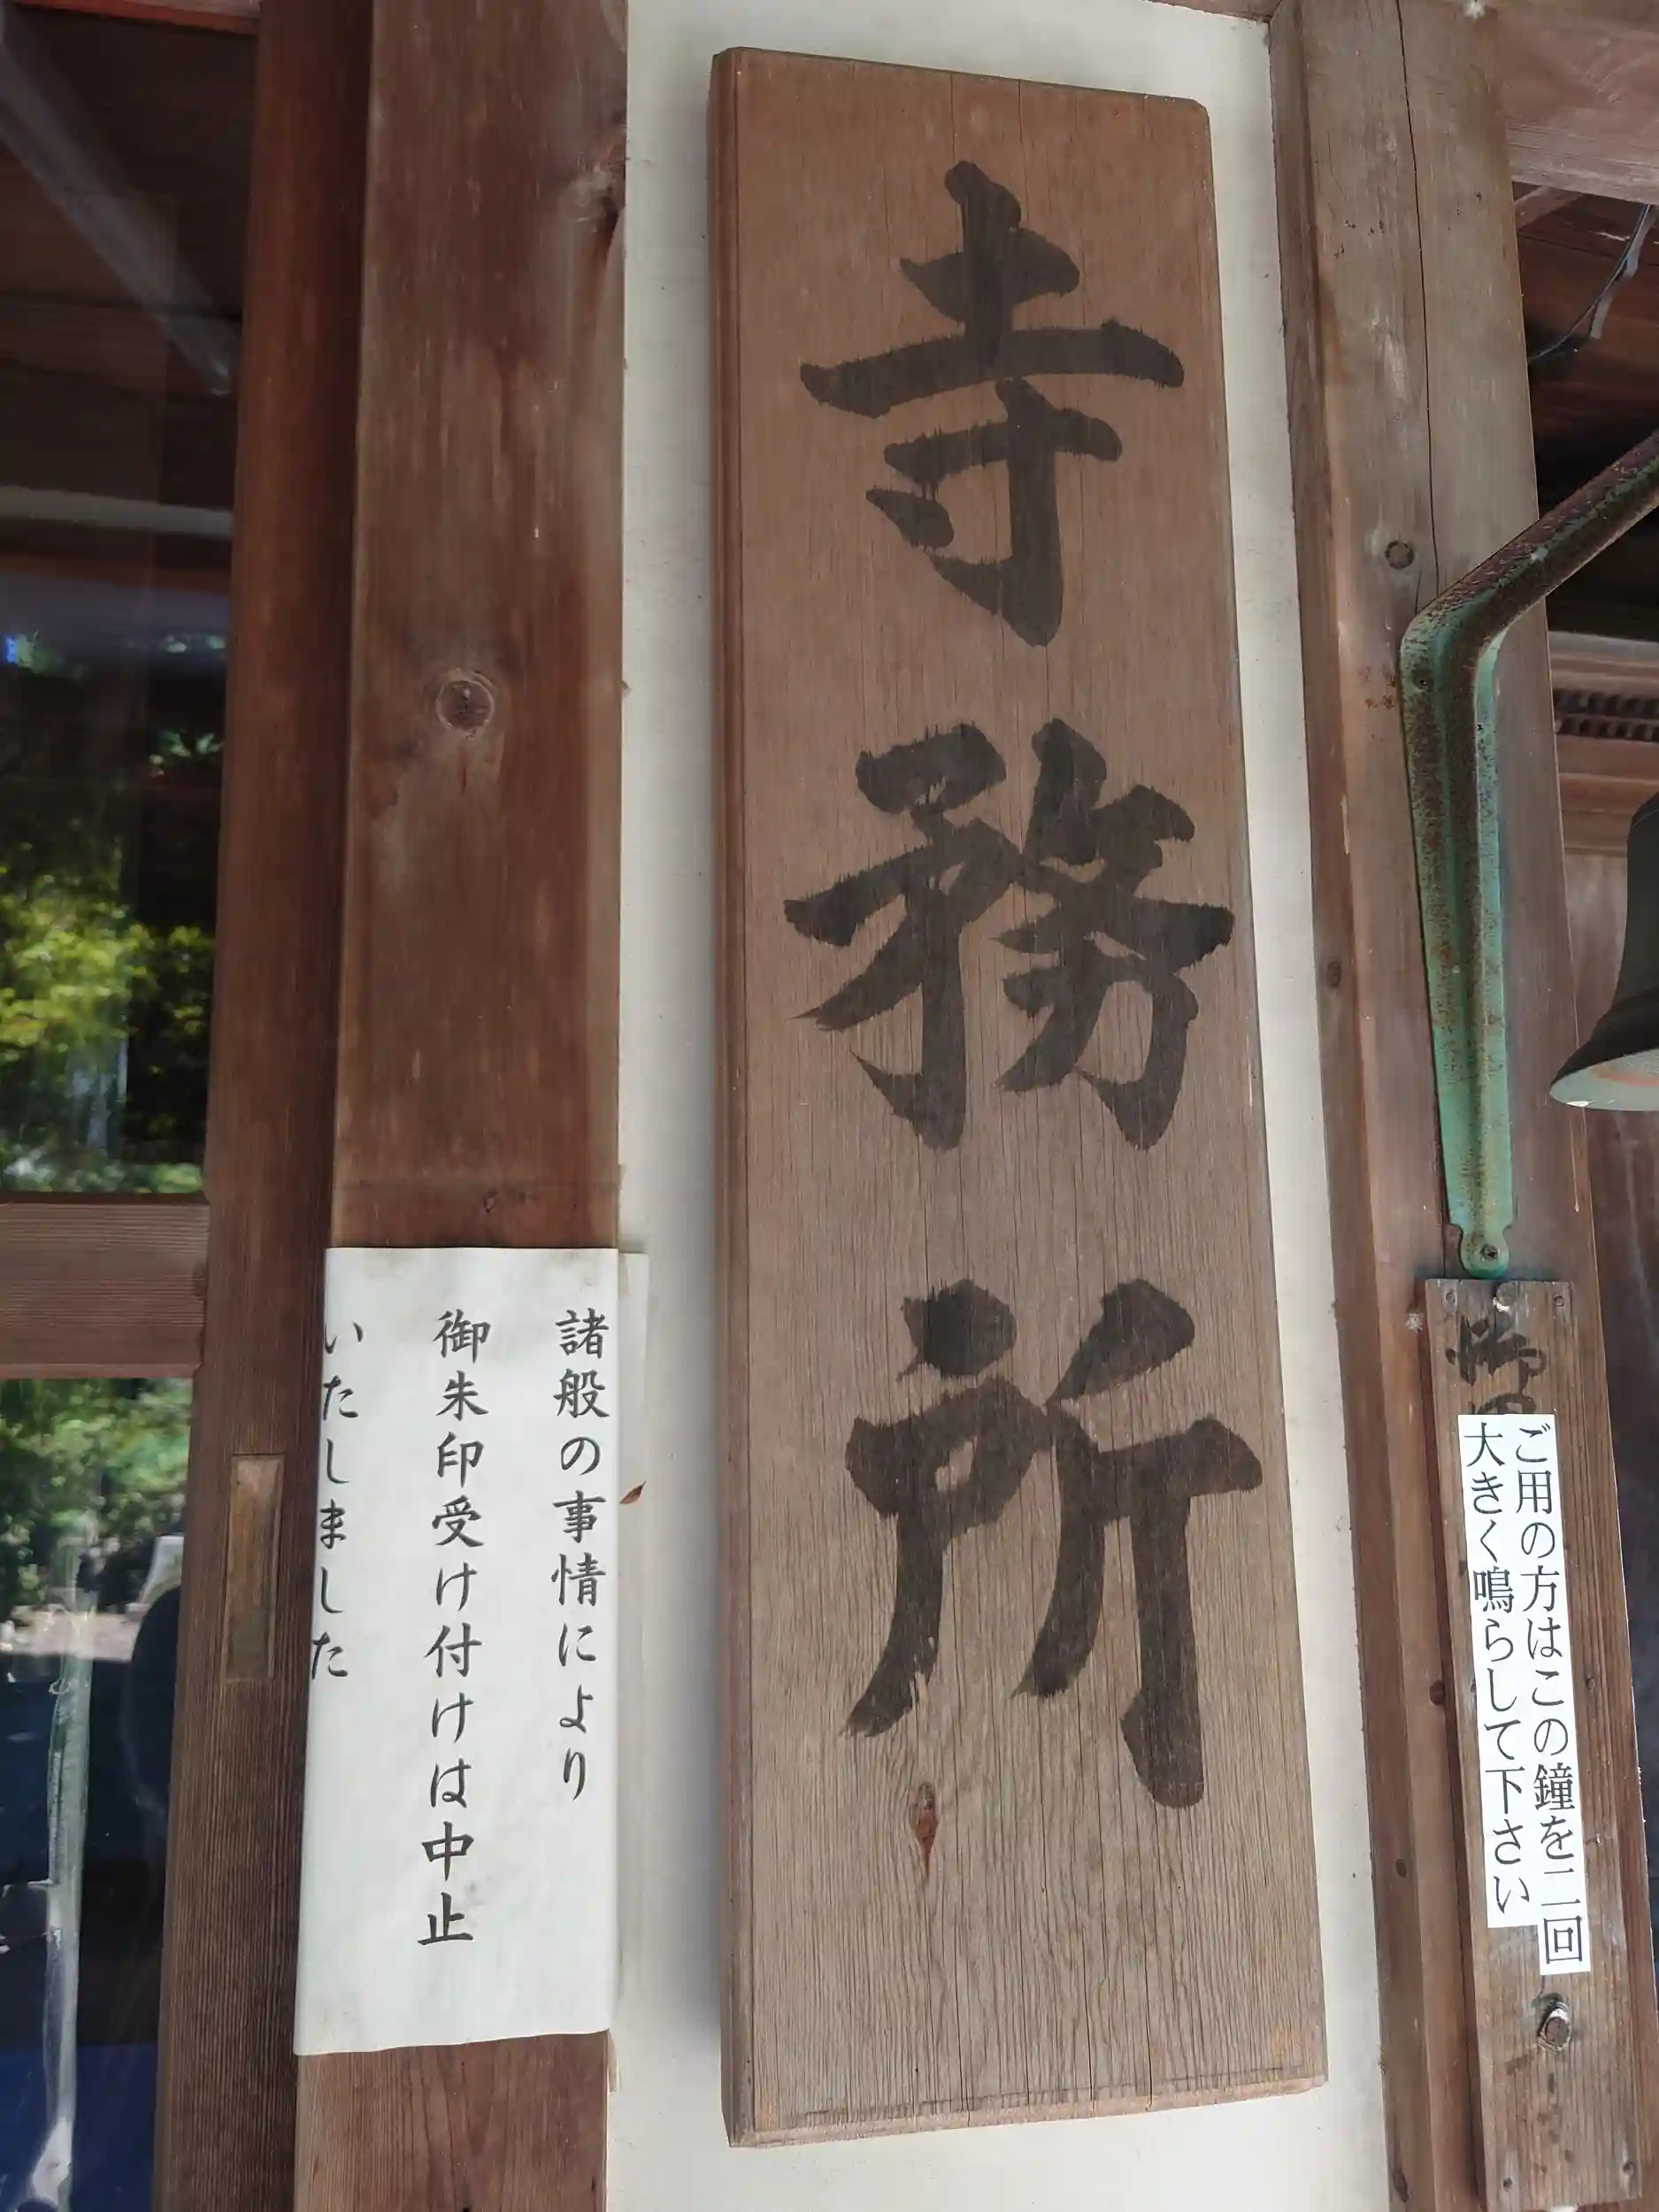 寺務所
諸般の事情により
御朱印受け付けは中止
いたしました
ご用の方はこの鐘を二回
大きく鳴らして下さい
御